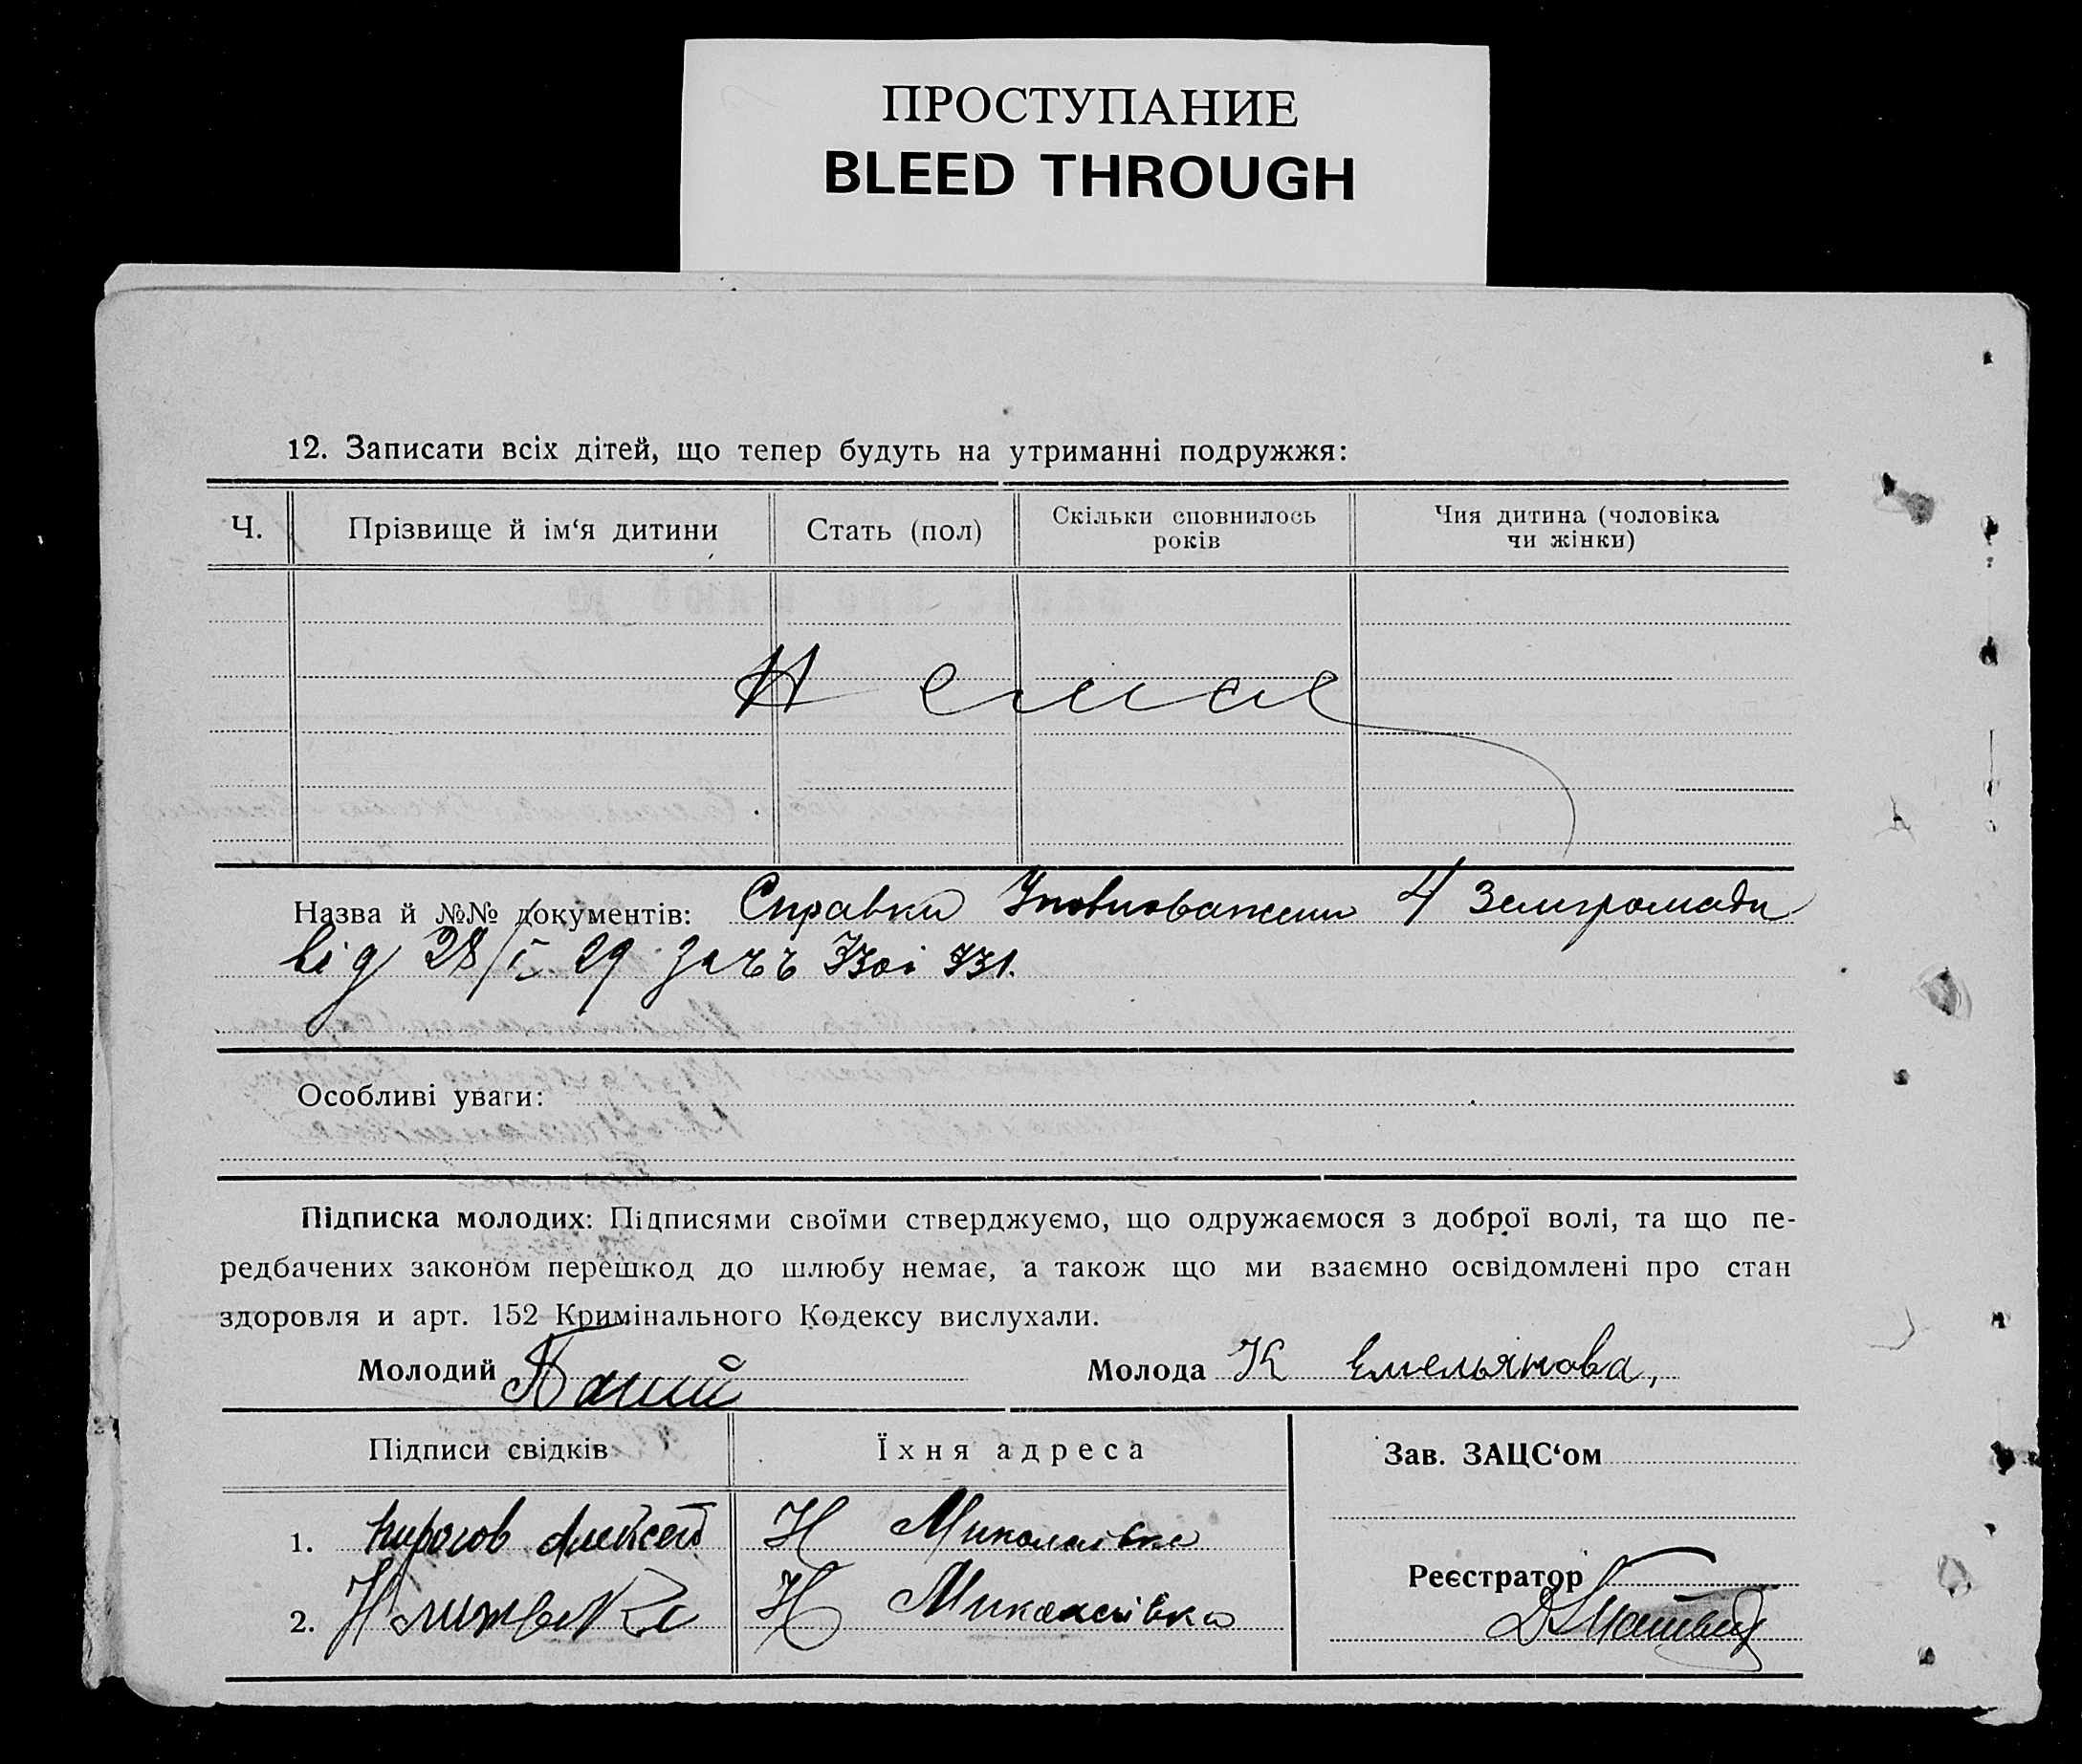 ПРОСТУПАНИЕ
BLEED THROUGH
12. Записати всіх дітей, що тепер будуть на утриманні подружжя:
Ч. Прізвище й ім‘я дитини Стать (пол) Скільки сповнилось років Чия дитина (чоловіка чи жінки)
Немає
Назва й №№ документів: Справки Уповноважени 4 Земгромади
від 28/ 29
Особливі уваги:
Підписка молодих: Підписями своїми стверджуємо, що одружаємося з доброї волі, та що пе-
редбачених законом перешкод до шлюбу немає, а також що ми взаємно освідомлені про стан
здоровля и арт. 152 Кримінального Кодексу вислухали.
Молодий Молода К Емельянова,
Підписи свідків Їхня адреса Зав. ЗАЦС‘ом
1. Алексей Н Миколаівка
Реєстратор
2. Н Миколаівка